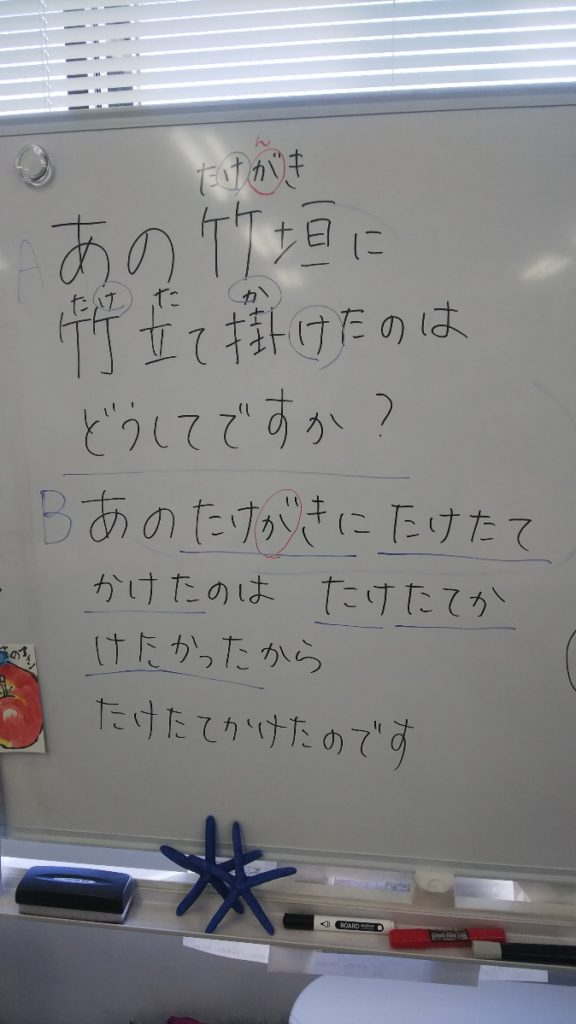 ん
たけがき
A あの竹垣に
たけ た か
竹立て掛けたのは
どうしてですか?
B あのたけがきにたけたて
かけたのは たけたてか
けたかったから
たけたてかけたのです
BOARD